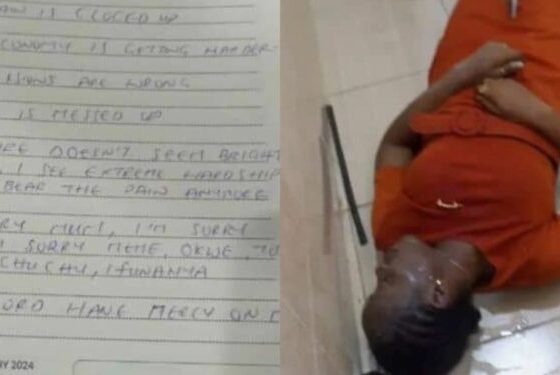 IS CLOCED UP
CONOMY IS GETTING HARDER
ARE WRONG
IS MESSED UP
RE DOESN'T SEEM BRIGHT
I SEE EXTREME HARDSHIP
BEAR THE PAIN ANYMORE
RY MUM, I'M SURRY
SURRY MEME, OKWE,
CHUCHU, IFUNANYA
ORD HAVE MERCY ON
RY 2024